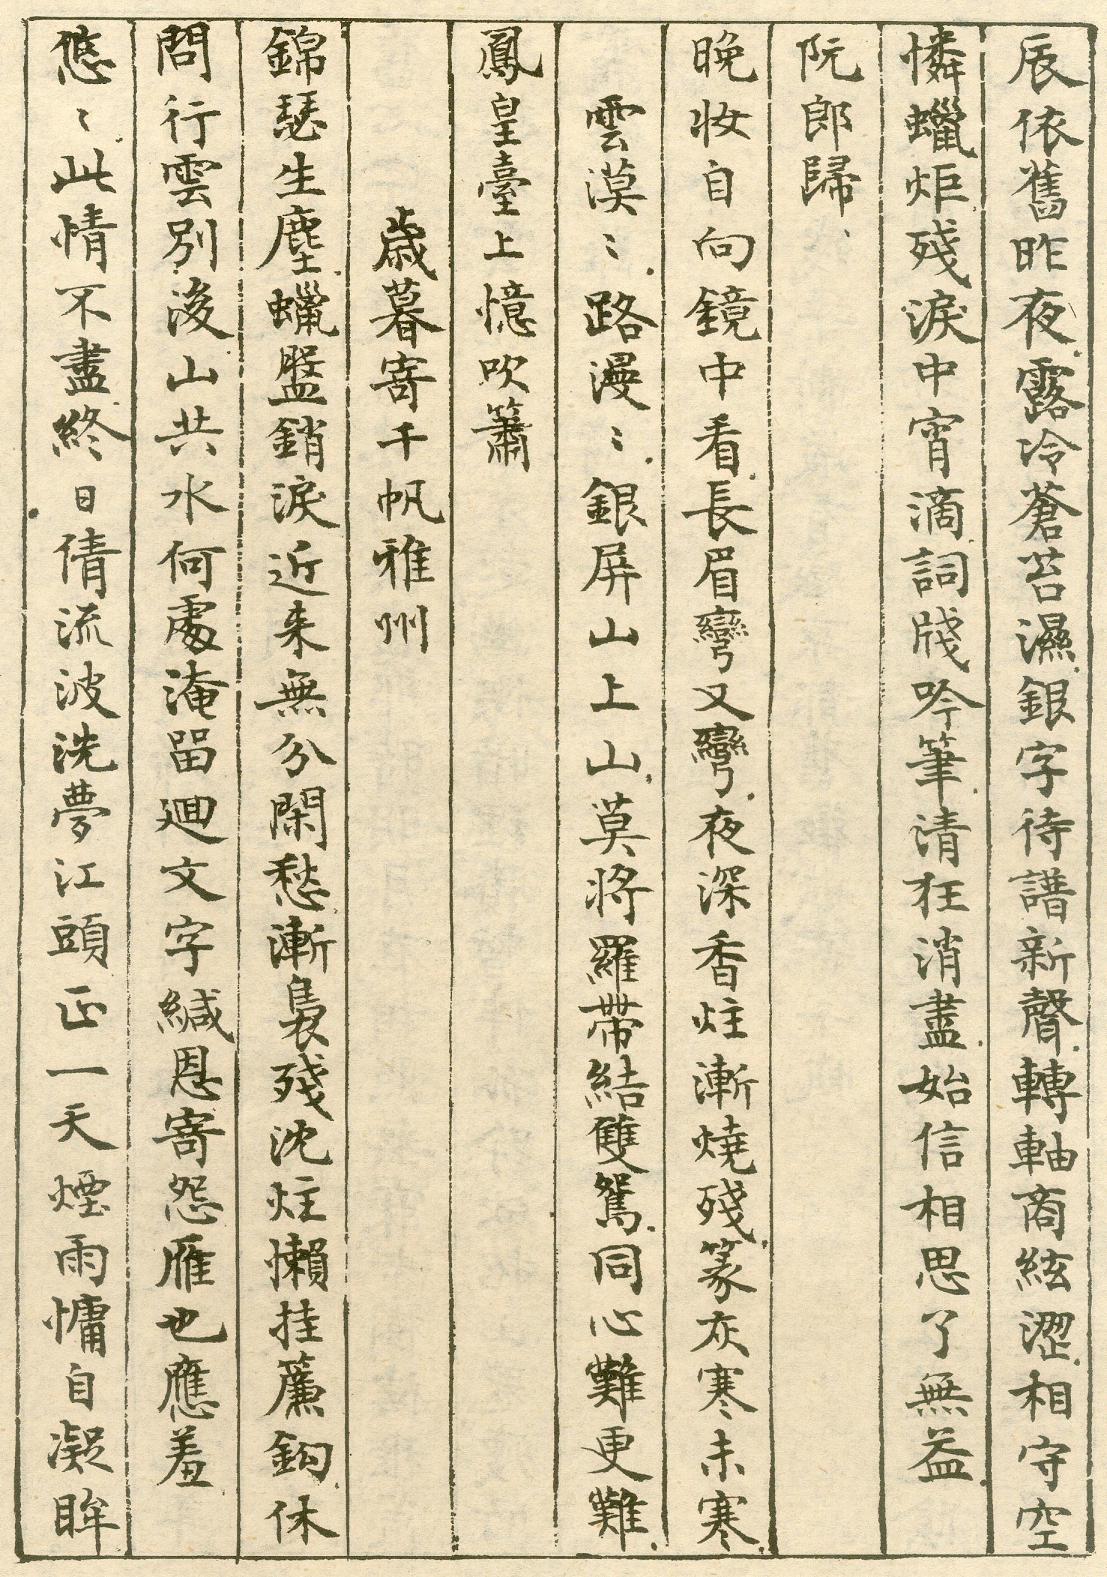 辰依舊昨夜露冷蒼苔濕銀字待譜新聲轉軸商絃澀相守空
憐蠟炬殘淚中宵滴詞牋吟筆清狂消盡始信相思了無益
阮郎歸
晚妝自向鏡中看長眉彎又彎夜深香炷漸燒殘篆灰寒未寒
雲漠〻路漫〻銀屏山上山莫將羅帶結雙鴛同心難更難
鳳皇臺上憶吹簫
歲暮寄千帆雅州
錦瑟生塵蠟盤銷淚近来無分閑愁漸裊殘沈炷懶挂簾鈎休
問行雲別後山共水何處淹畱迴文字緘恩寄怨雁也應羞
悠〻此情不盡終日倩流波洗夢江頭正一天煙雨慵自凝眸